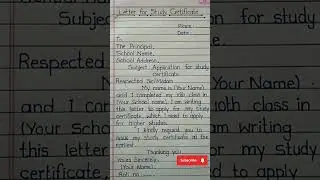 Letter for Study Certificate
Place
Date
To
The Principal,
School Name,
School Address,
Subject Application for study
Certificate
Respected Sir/Madam
My name is (Your Name)
and I completed my 10th class in
(Your School name). I am writing
this letter to apply for my Study
certificate, which I need to apply
for higher studies.
I kindly request you to
issue my study certificate at the
earliest.
Thanking you
Yours Sincerely,
(Your Name)
Roll no
Subscribe
Subject
Respected
and I
(Your
this
certificate
for study
Name)
class in
writing
study
apply